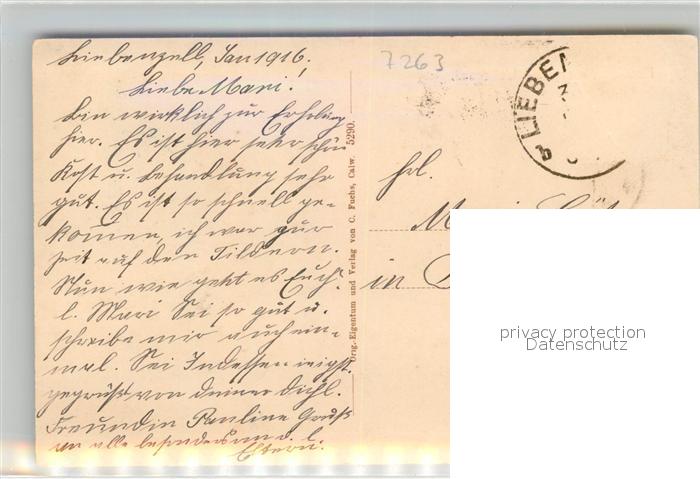 Liebenzell, Jan 1916.
Liebe Mari!
bin wirklich zur Erholung
hier. Es ist hier sehr schön
Kost u. Behandlung sehr
gut. Es ist so schnell ge-
kommen, ich war zur
Zeit auf den Fildern.
Nun wie geht es Euch?
l. Mari Sei so gut u.
schreibe mir auch ein-
mal. Sei Indessen innigst
gegrüßt von deiner Dichl.
Freundin Pauline Gruß
an alle besonders an d. l.
Eltern.
Orig.-Eigentum und Verlag von C. Fuchs, Calw. 5290.
7263
LIEBEN
Frl.
in
privacy protection
Datenschutz